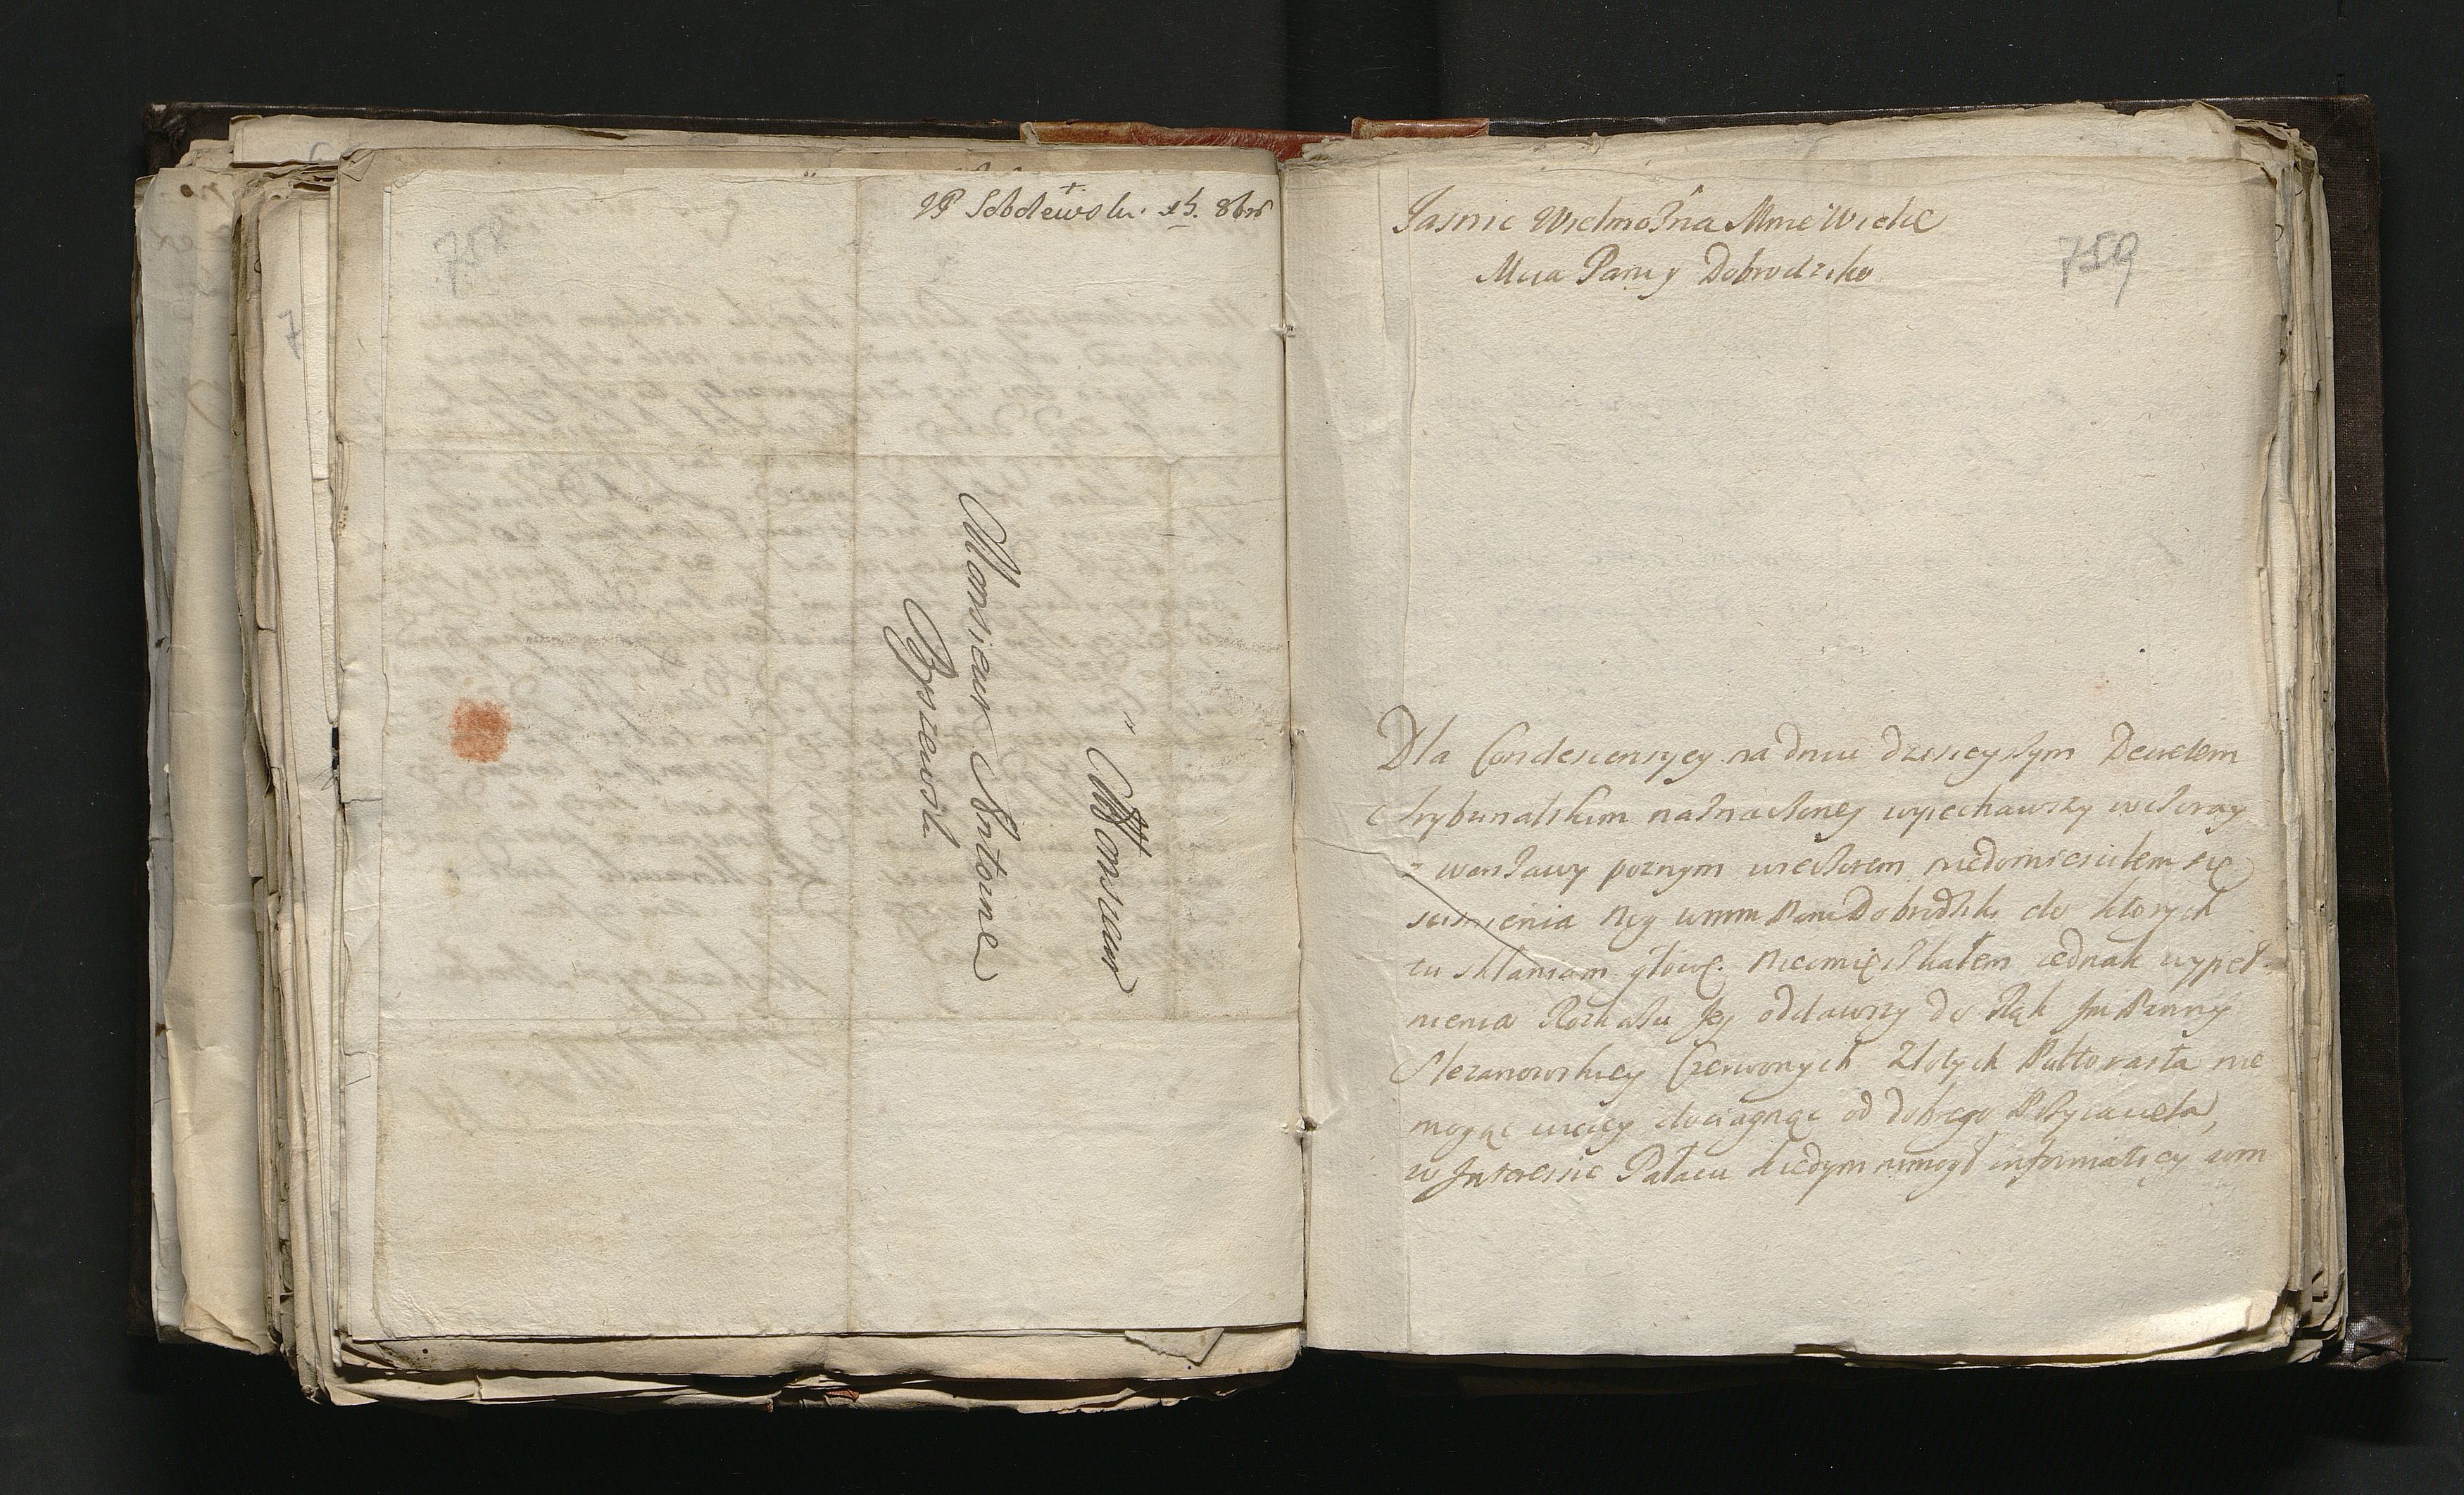 JP Sobolewski. 15. 8bris
758
7
"
Monsieur
Monsieur Antoine
Byszewski
759
Jasnie Wielmożna Mnie Wielce
Mcia Pani y Dobrodziko
Dla Condescensyey na dniu dzisieyszym Decretem
Trybunalskim naznaczoney wyiechawszy wczoray
z warszawy poznym wieczorem niedomiescilem się
scisnienia Nog wmm Pani Dobrodzki do ktorych
tu skłaniam głowę. Nieomięszkałem iednak wypeł-
nienia Rozkazu Jey oddawszy do Rąk Jm Panny
Czerwonych Złotych Pułtorasta nie
mogąc więcy dociagnąc od dobrego Przyiaciela,
w Interessie Pałacu kiedym niemogł informatiey wm